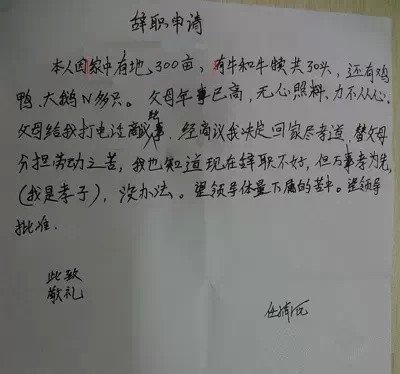 辞职申请
本人因家中有地300亩，有牛和牛犊共30头，还有鸡
鸭、大鹅N多只。父母年事已高，无心照料，力不从心。
父母给我打电话商议事，经商议我决定回家尽孝道，替父母
分担劳动之苦，我也知道现在辞职不好，但万事孝为先，
(我是孝子)，没办法。望领导体量下属的苦中。望领导
批准.
此致
敬礼